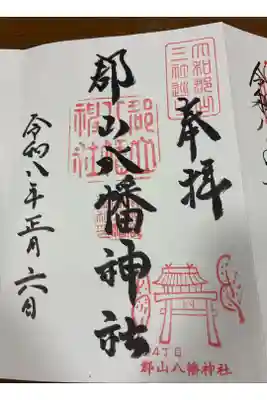 大和郡山
三社巡り
奉拝
郡山八幡神社
令和八年正月六日
郡山八幡神社